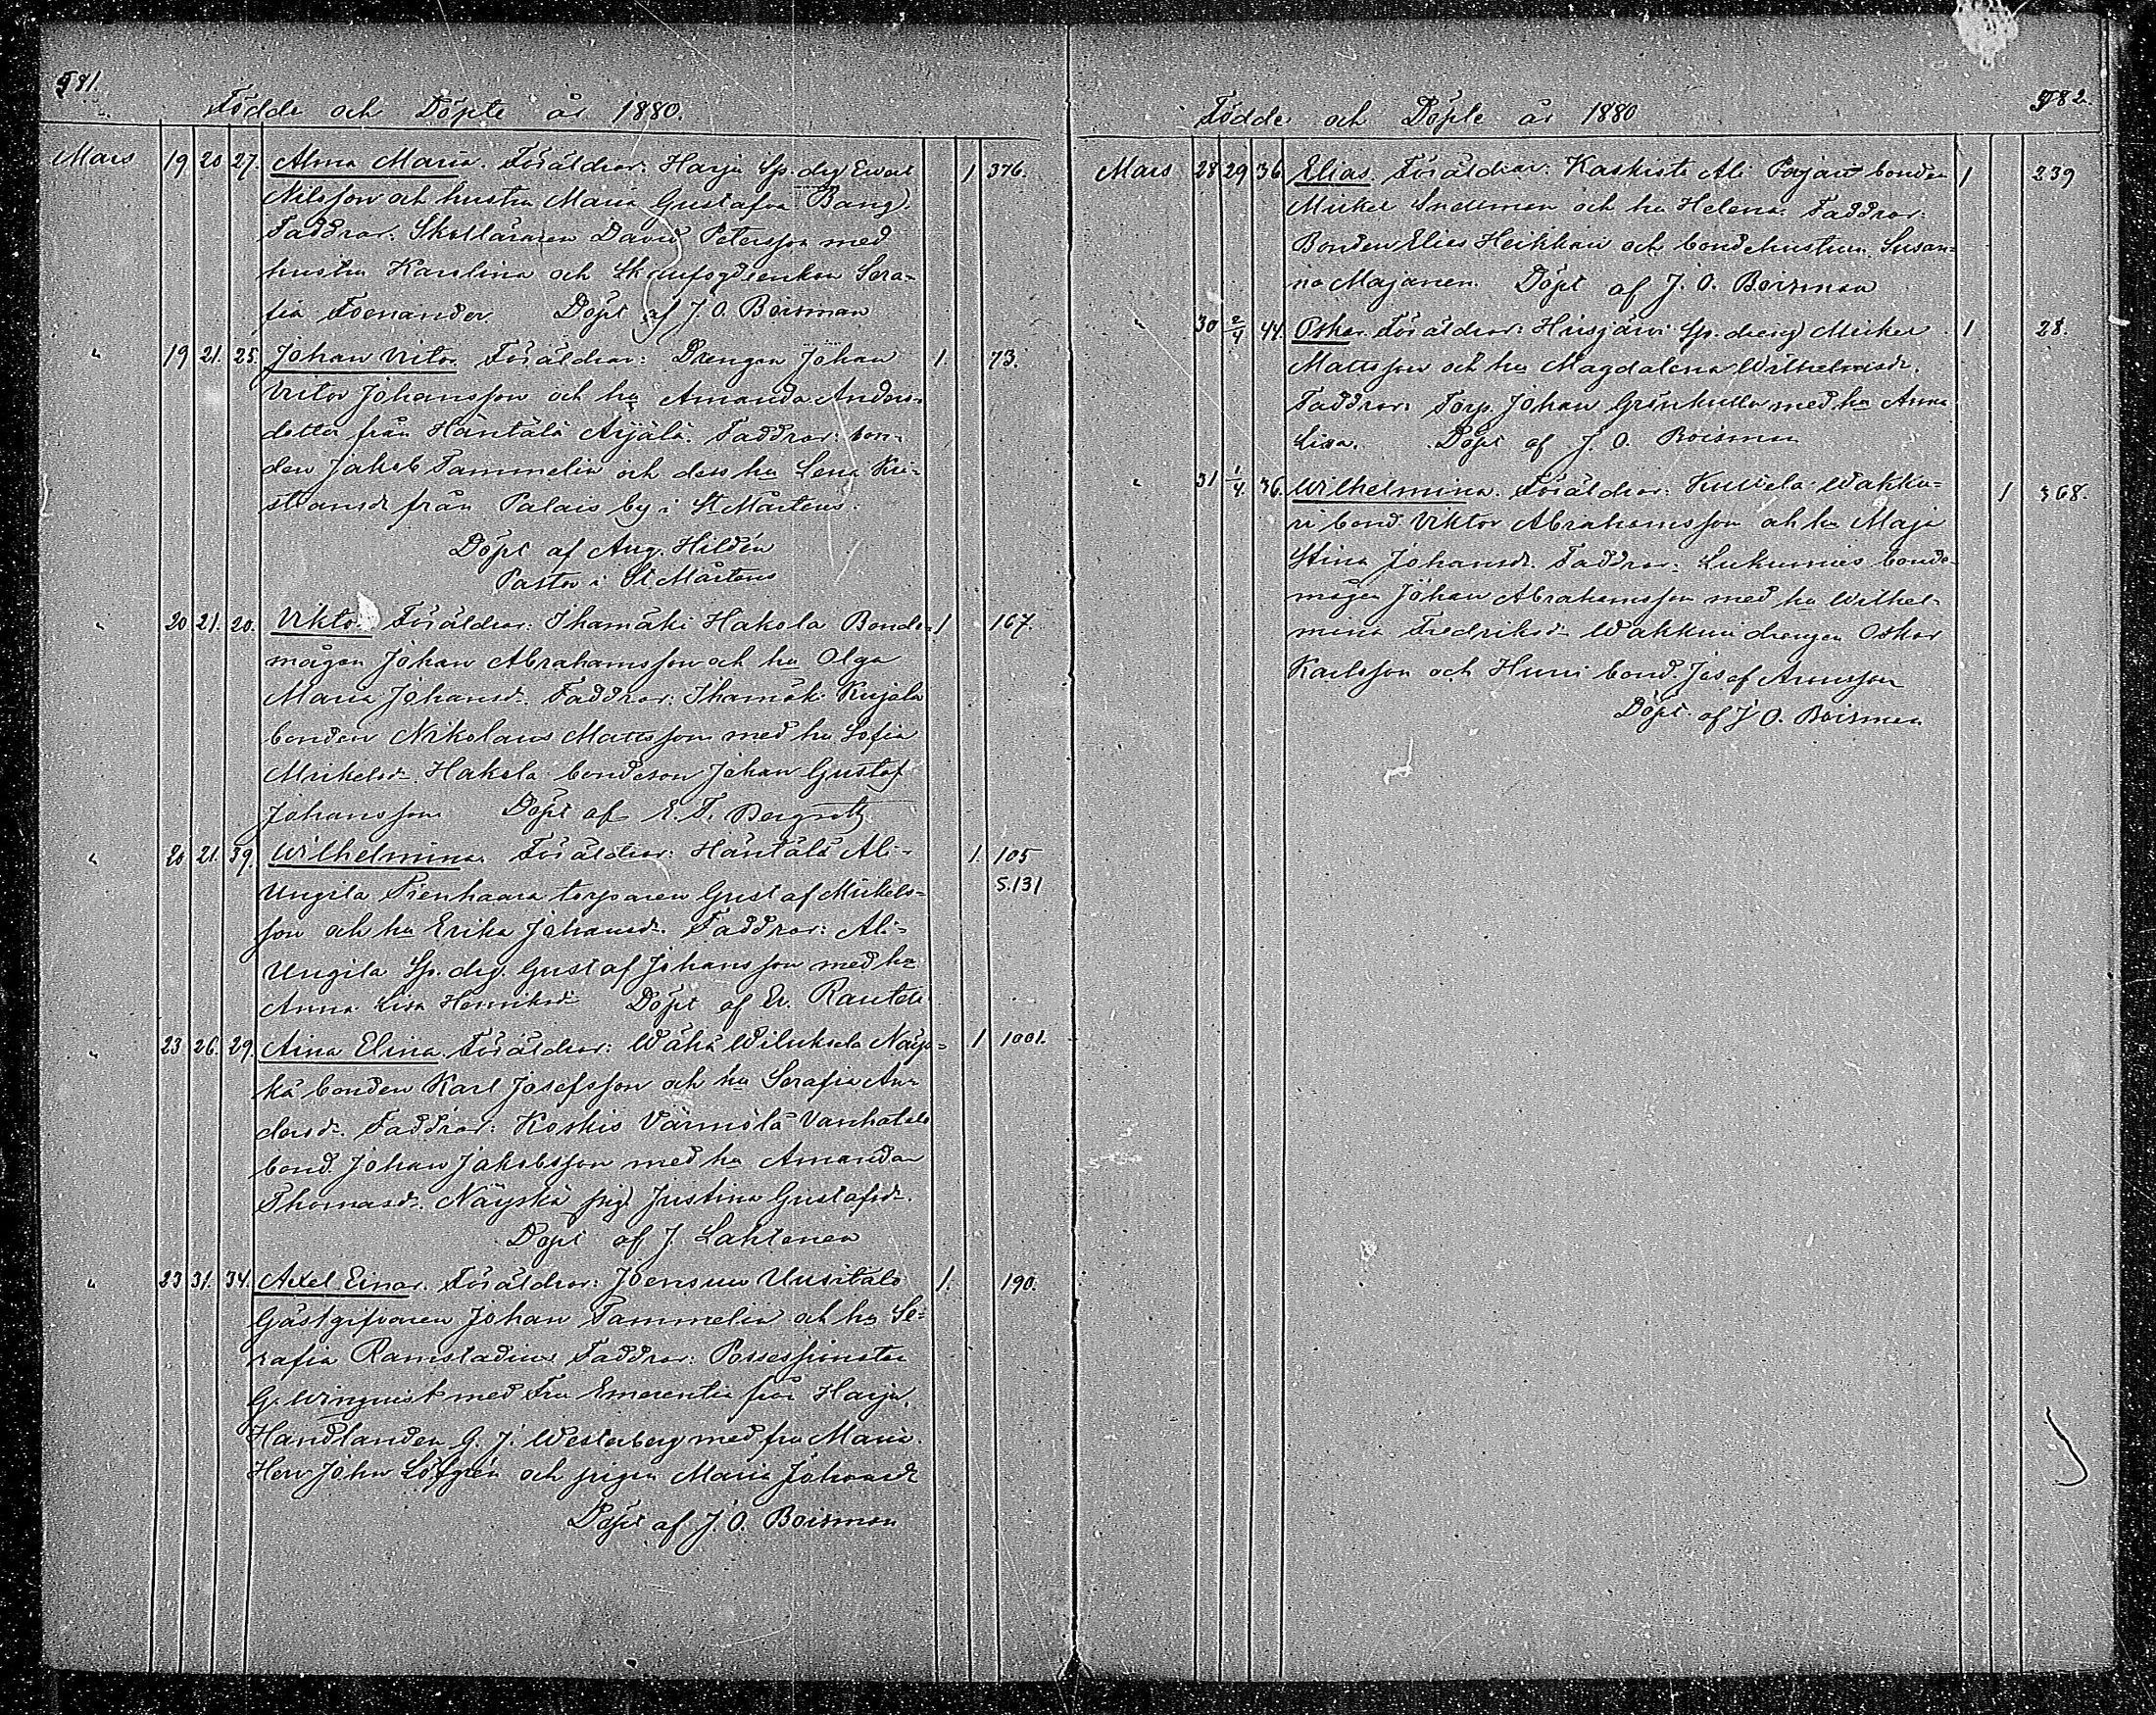 981.
Födde och Döpte år 1880.
Mars 19 20 27. Alma Maria. Föräldrar: Harju Sp. drg Evert 1 376.
Nilsson och hustru Maria Gustafva Bang.
Faddrar: Skolläraren David Petersson med
hustru Karolina och Skogsfogdeenkan Sera-
fia Forenander. Döpt af J. O. Boisman
" 19 21. 25. Johan Vitor Föräldrar: Drengen Johan 1. 73.
Vitor Johansson och hu Amanda Anders-
dotter från Häntälä Äijälä. Faddrar: bon-
den Jakob Tammelin och dess hu Lena Kri-
stiansdr från Palais by i St Mårtens.
Döpt af Aug. Hildén
Pastor i St Mårtens
" 20 21. 20. Viktor Föräldrar: Ihamäki Hakola Bonde- 1 167.
mågen Johan Abrahamsson och hu Olga
Maria Johansdr. Faddrar: Ihamäki Kujala
bonden Nikolaus Mattsson med hu Sofia
Mickelsdr Hakola bondeson Johan Gustaf
Johansson Döpt af E. F. Bergroth
" 20 21. 39. Wilhelmina. Föräldrar: Häntälä Ali- 1. 105
S.131
Ungila Pienhaara torparen Gustaf Mickels-
son och hu Erika Johansdr. Faddrar: Ali-
Ungila Sp. drg. Gustaf Johansson med hu
Anna Lisa Henriksdr Döpt af Er. Rautell
" 23 26. 29. Aina Elina. Föräldrar: Wähä Wiluksela Näys- 1 1001.
kä bonden Karl Josefsson och hu Serafia An-
dersdr. Faddrar: Koskis Värmälä Vanhatalo
bond. Johan Jakobsson med hu Amanda
Thomasdr. Näyskä pig. Justina Gustafsdr.
Döpt af J. Lahtonen
" 23 31. 34. Axel Einar. Föräldrar: Joensuu Uusitalo 1. 190.
Gästgifvaren Johan Tammelin och hu Se-
rafia Ramstadius Faddrar: Possessionaten
G. Winquist med Fru Emerentia från Harju.
Handlanden G. J. Westerberg med fru Maria.
Herr John Löfgrén och pigan Maria Johansdr
Döpt af J. O. Boisman
982.
Födde och Döpte år 1880
Mars 28 29 36 Elias. Föräldrar: Kaskisto Ali Pajari bonden 1 239
Mickel Snellman och hu Helena. Faddrar:
Bonden Elias Heikkari och bondehustrun Susan-
na Majanen. Döpt af J. O. Boisman
" 30 2/4 44. Oskar. Föräldrar: Hirsjärvi Sp. dreng Mickel 1 28.
Mattsson och hu Magdalena Wilhelmsdr.
Faddrar: Torp. Johan Grönkulla med hu Anna
Lisa. Döpt af J. O. Boisman
" 31 1/4. 36. Wilhelmina. Föräldrar: Kultela Wakku- 1 368.
ri bond. Viktor Abrahamsson och hu Maja
Stina Johansdr. Faddrar: Lukumies bonde-
mågen Johan Abrahamsson med hu Wilhel-
mina Fredriksdr Wakkuri drengen Oskar
Karlsson och Hurri bond. Josef Aronsson
Döpt af J O. Boisman